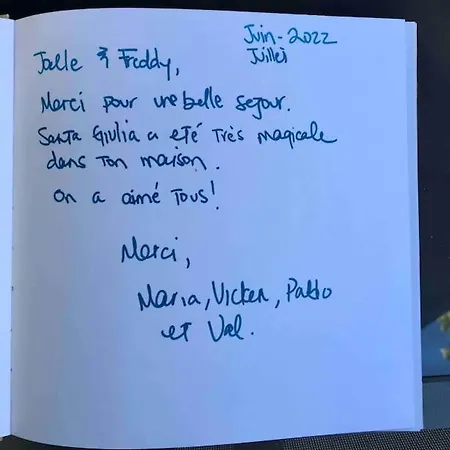 Juin-2022
Juillet
Joelle & Freddy,
Merci pour une belle sejour.
Santa Giulia a été très magicale
dans ton maison.
On a aimé tous!
Merci,
Maria, Vicken, Pablo
et Val.